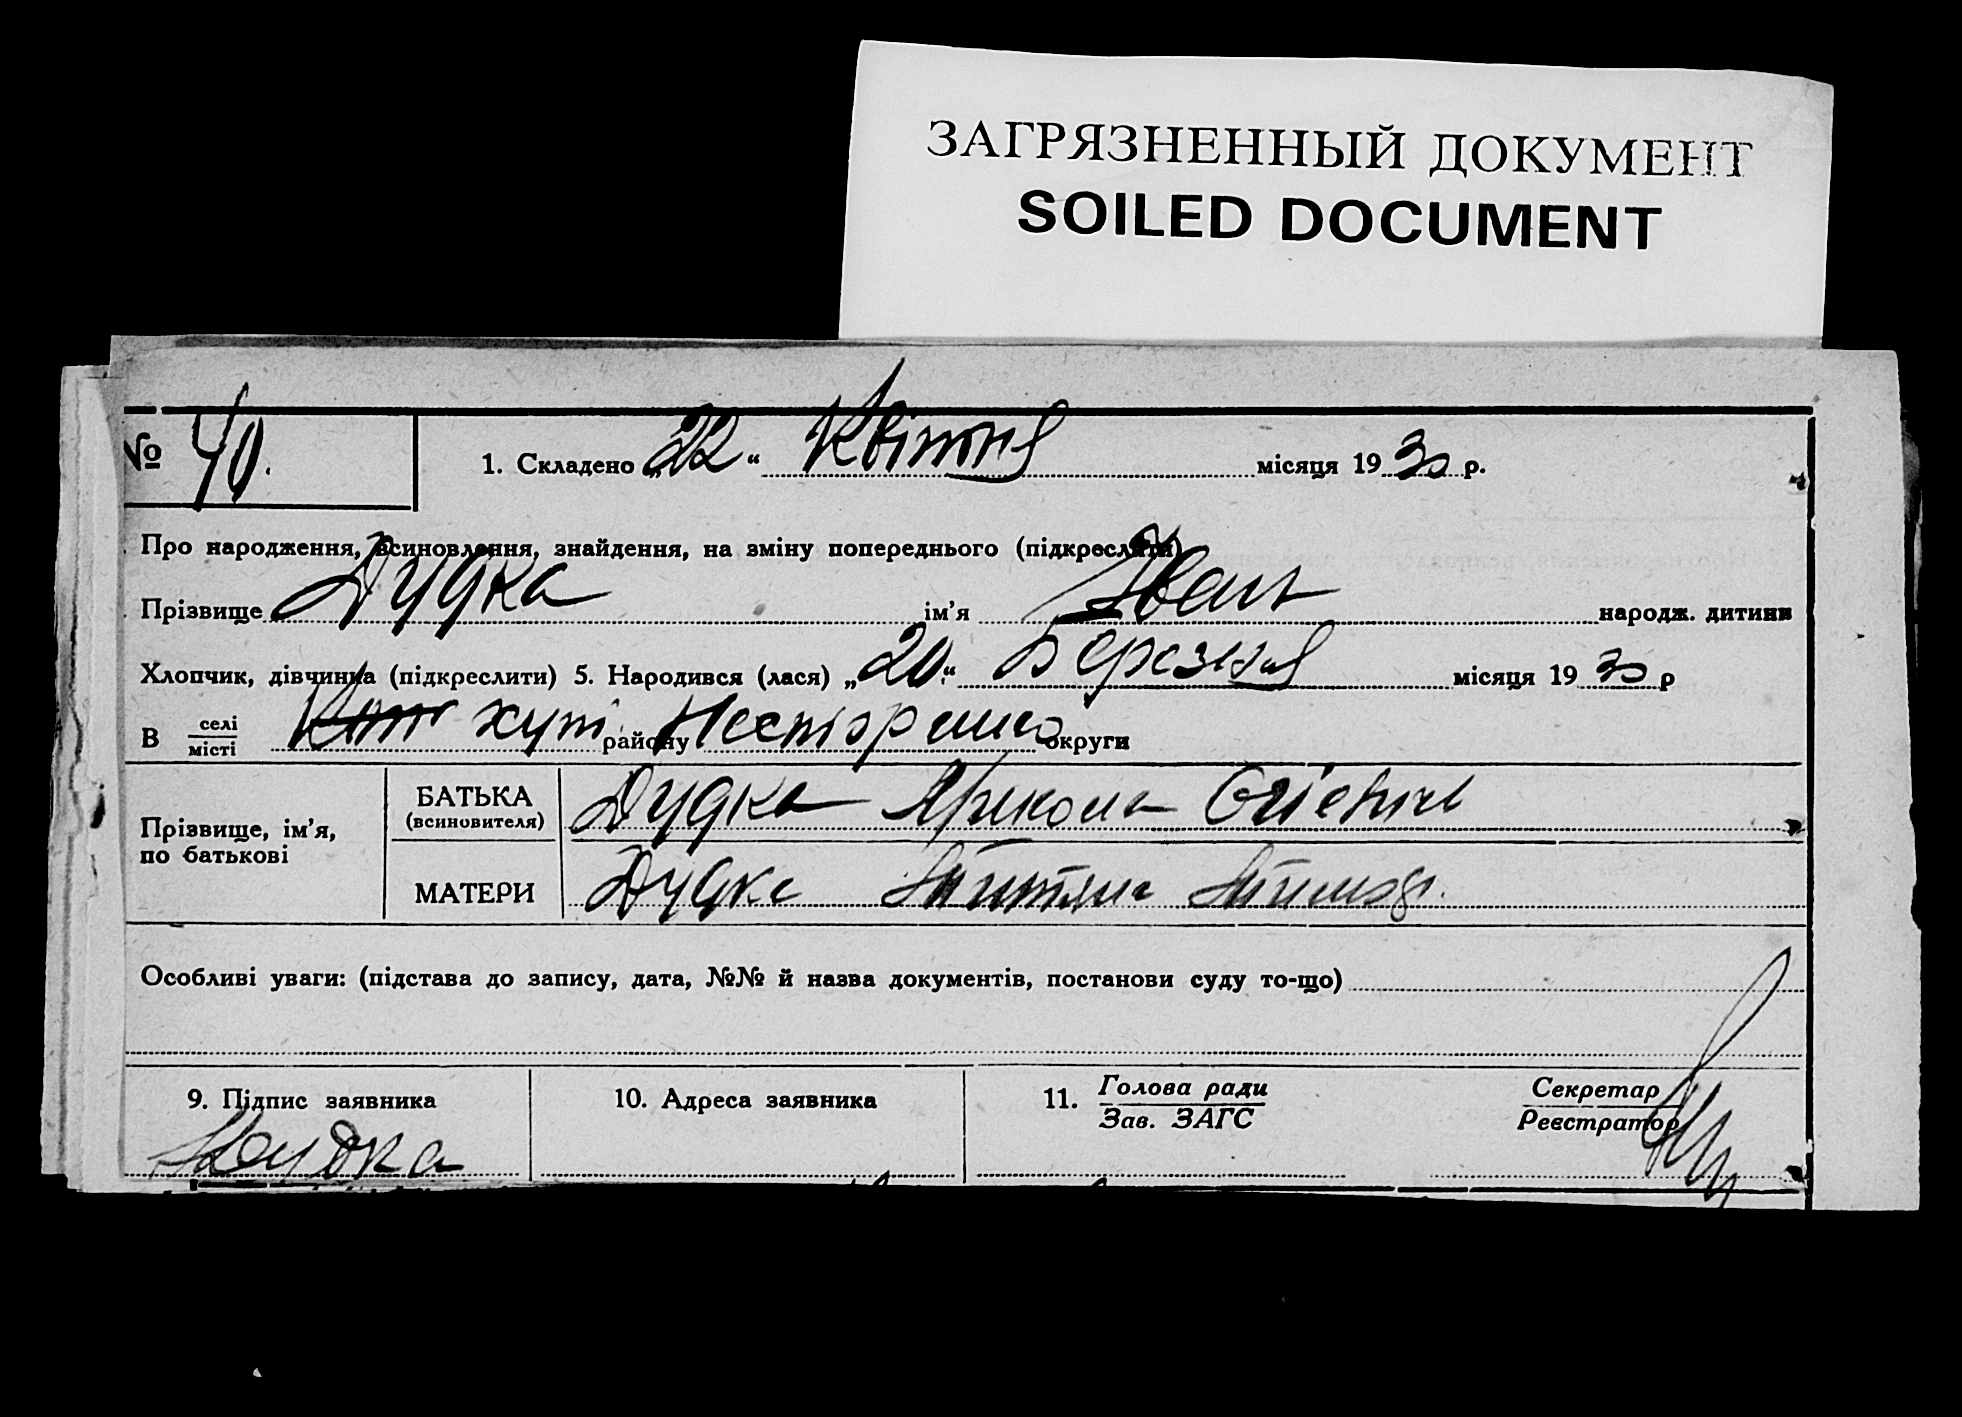 ЗАГРЯЗНЕННЫЙ ДОКУМЕНТ
SOILED DOCUMENT
№ 40. 1. Складено „22“ Квітня місяця 1930 р.
Про народження, всиновлення, знайдення, на зміну попереднього (підкреслити)
Прізвище Дудка ім’я Іван народж. дитини
Хлопчик, дівчинка (підкреслити) 5. Народився (лася) „20“ Березня місяця 1930 р
В селі місті хут району округи
Прізвище, ім’я, по батькові
БАТЬКА (всиновителя) Дудка
МАТЕРИ Дудка
Особливі уваги: (підстава до запису, дата, №№ й назва документів, постанови суду то-що)
9. Підпис заявника 10. Адреса заявника 11. Голова ради Зав. ЗАГС Секретар Реєстратор
Дудка